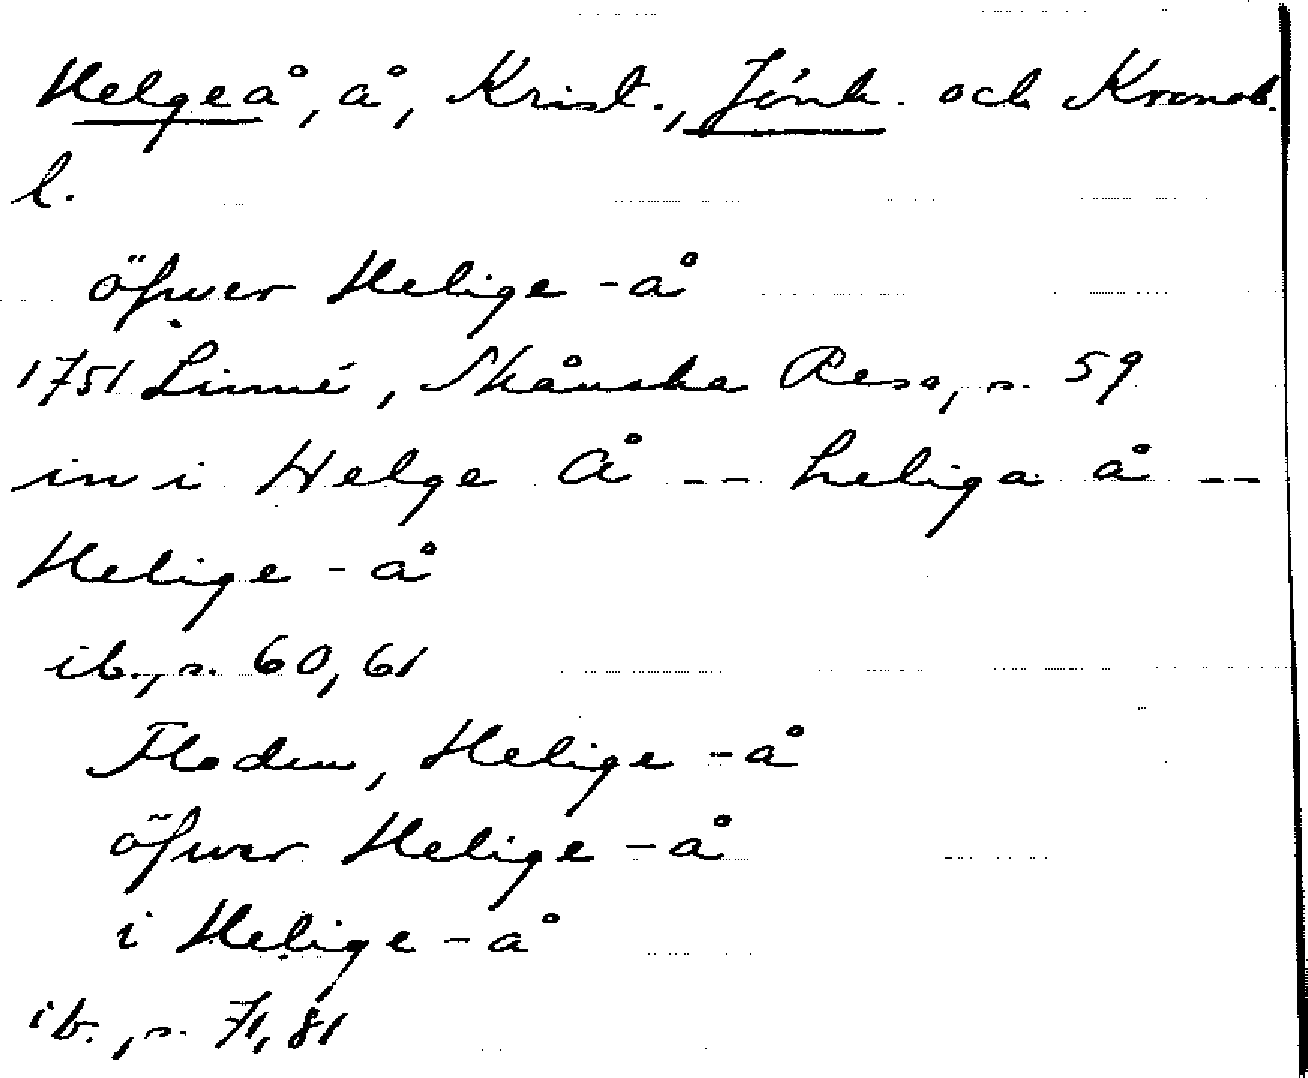 Helgeå, å, Krist., Jönk. och Kronob.
l.
öfwer Helige-å
1751 Linné, Skånska Resa, s. 59
in i Helge Å -- heliga å --
Helige-å
ib., s. 60, 61
Floden, Helige-å
öfwer Helige-å
i Helige-å
ib., s. 71, 81